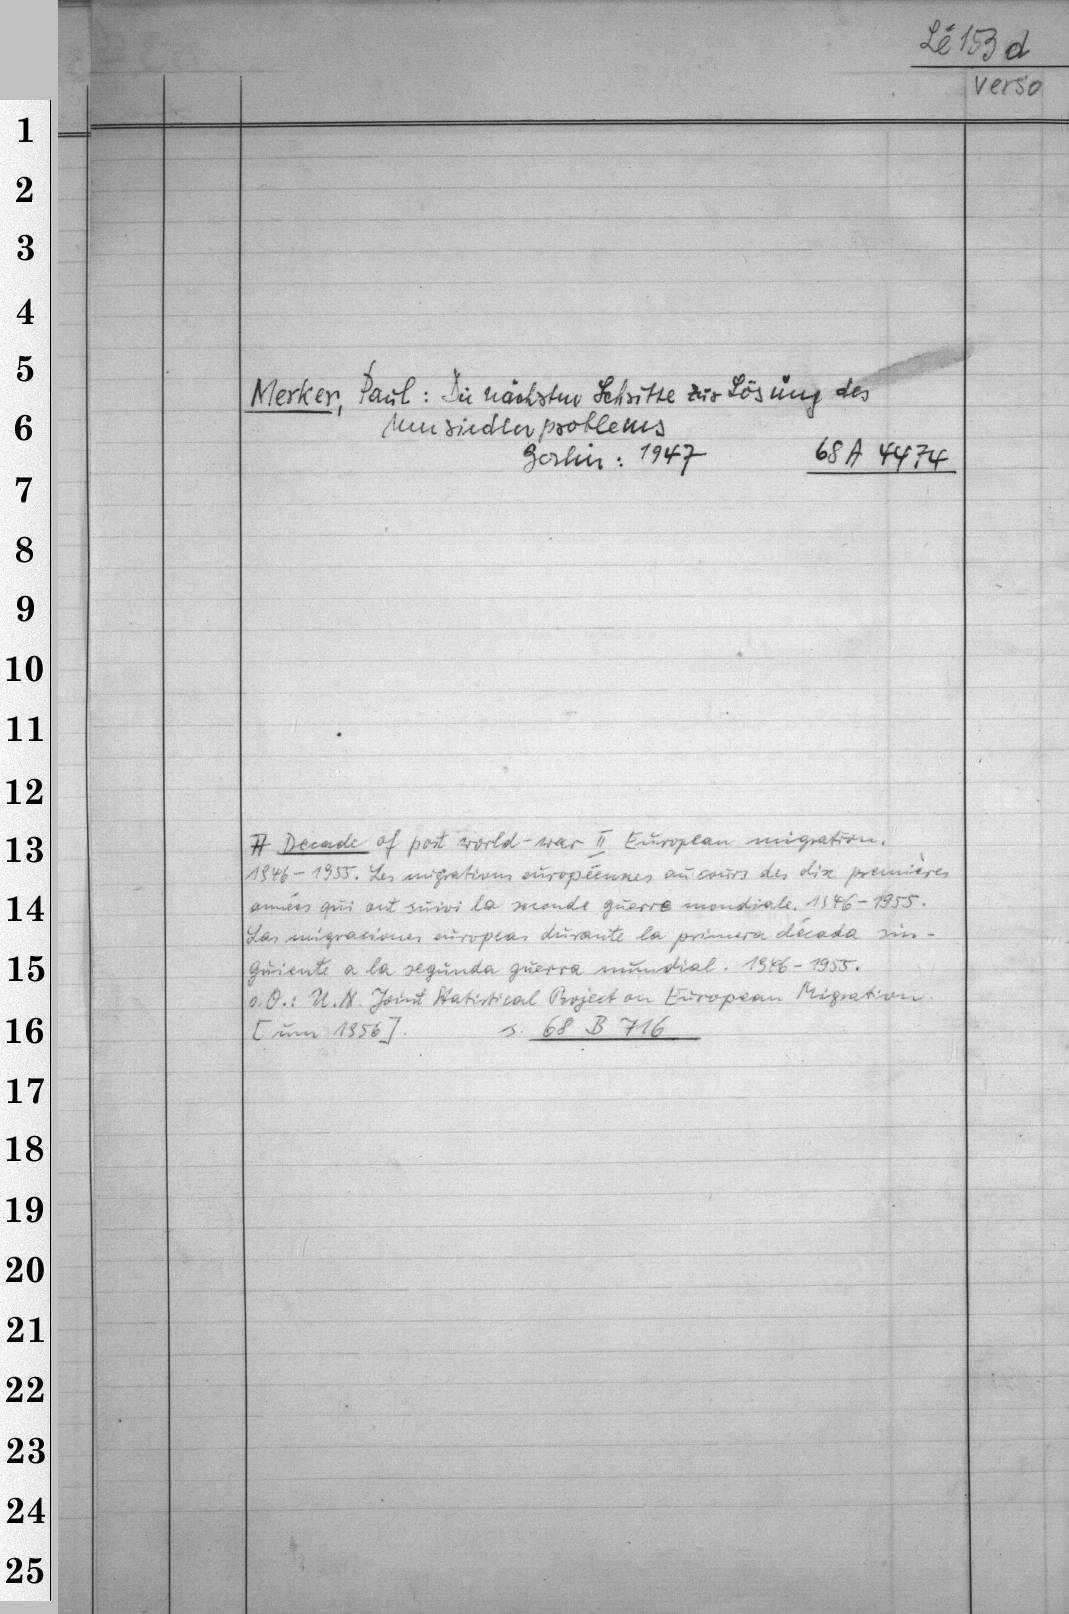 Lé 153 d
verso
1
2
3
4
5
Merker, Paul: Die nächsten Schritte zur Lösung des
6
Umsiedlerproblems
Berlin: 1947 68 A 4474
7
8
9
10
11
12
13
A Decade of post world-war II European migration.
1946-1955. Les migrations européennes au cours des dix premières
14
années qui ont suivi la seconde guerre mondiale. 1946-1955.
Las migraciones europeas durante la primera década sin-
15
guiente a la segunda guerra mundial. 1946-1955.
o.O.: U.N. Joint Statistical Project on European Migration.
16
[um 1956]. s. 68 B 716
17
18
19
20
21
22
23
24
25